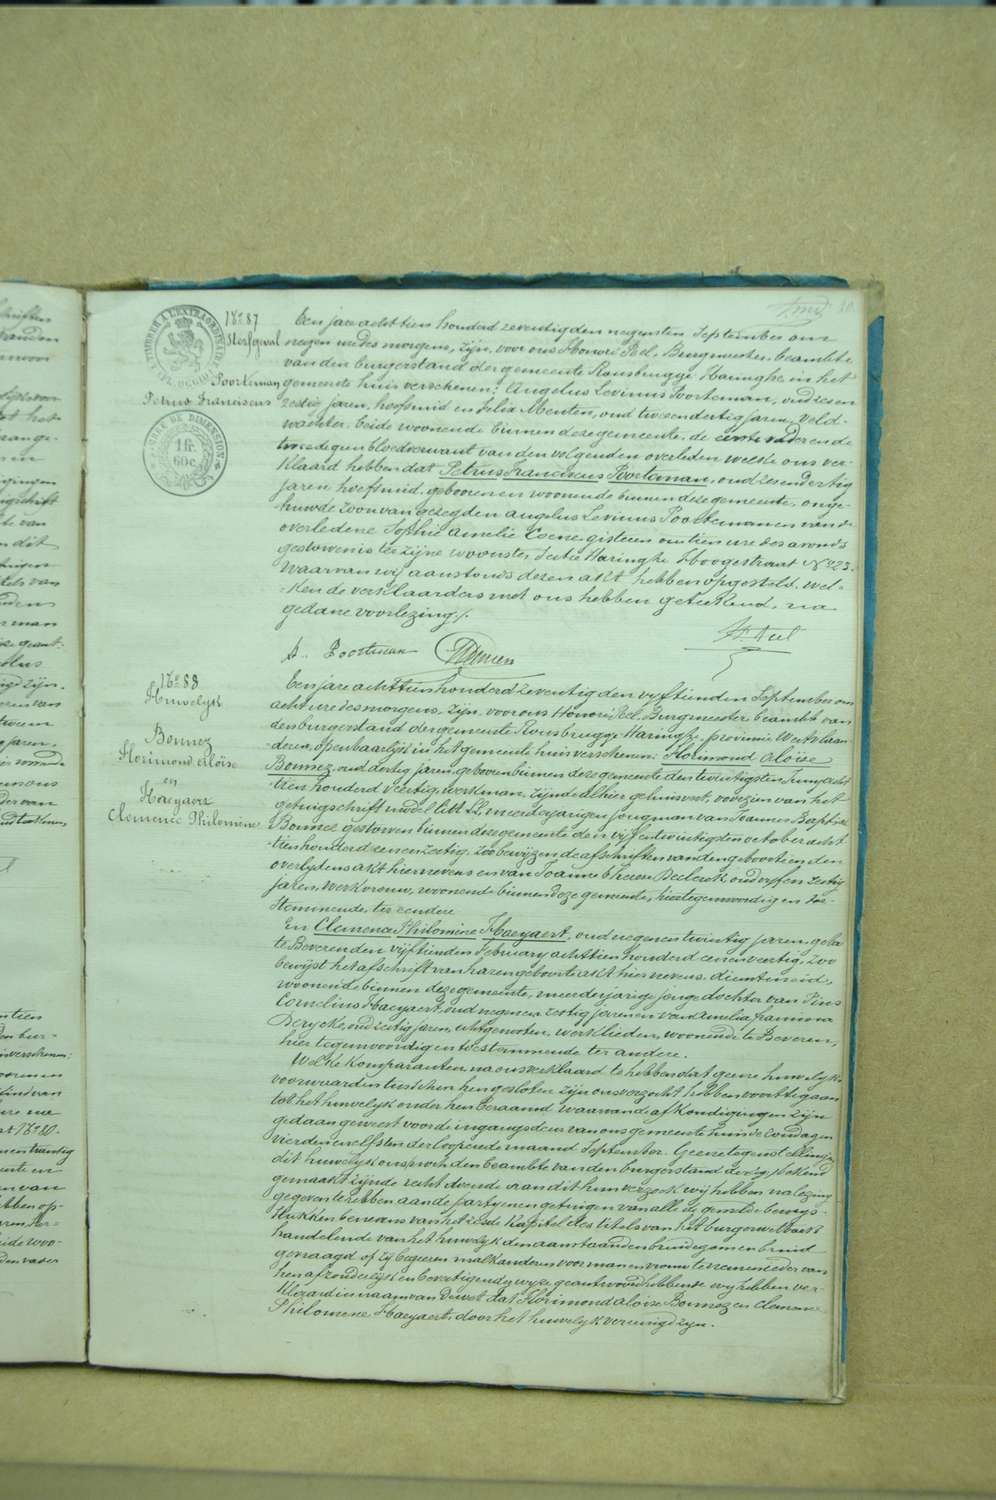 TIMBRE A L'EXTRAORDINAIRE
FL. OCCID.
TIMBRE DE DIMENSION
1 fr.
60 c.
No 87
Sterfgeval
Poorteman
Petrus Franciscus
Een jare achttien honderd zeventig den negensten September om
negen ure des morgens, zijn, voor ons Honoré Peel, Burgmeester beambte
van den burgerstand der gemeente Rousbrugge Haringhe in het
gemeente huis verschenen: Angelus Levinus Poorteman, oud zes en
zestig jaren, hoefsmid en Felix Menten, oud twee en dertig jaren, veld-
wachter, beide woonende binnen deze gemeente, de eerste vader en de
tweede gen bloedverwant van den volgenden overleden welke ons ver-
klaard hebben dat Petrus Franciscus Poorteman, oud zes en dertig
jaren hoefsmid, geboren en woonende binnen deze gemeente, onge-
huwde zoon van gezegden Angelus Levinus Poorteman en van de
overledene Sophie Amelie Coene, gisteren om tien ure des avonds
gestorven is te zijne woonste, Sectie Haringhe Hoogestraat No 23.
Waarvan wij aanstonds dezen akt hebben opgesteld, wel-
ken de verklaarders met ons hebben geteekend, na
gedane voorlezing./.
A. Poorteman Menten H. Peel
No 88
Huwelyk
Bonnez
Florimond Aloïse
en
Haeyaert
Clemence Philomène
Een jare achttien honderd zeventig den vyftienden September om
acht ure des morgens, zijn, voor ons Honoré Peel, Burgmeester beambte van
den burgerstand der gemeente Rousbrugge Haringhe, provincie Westvlaan-
deren, openbaarlijk in het gemeente huis verschenen: Florimond Aloïse
Bonnez, oud dertig jaren, geboren binnen deze gemeente den twintigsten Juny acht
tien honderd veertig, werkman, zijnde alhier gehuisvest, voorzien van het
getuigschrift model litt. LL, meerderjarigen jongman van Joannes Baptiste
Bonnez gestorven binnen deze gemeente den vijf en twintigsten october acht
tien honderd een en zestig, zoo bewijzen de afschriften van den geboorte en den
overlydens akt hiernevens en van Joanne Therese Declerck, oud vijf en zestig
jaren, werkvrouw, woonende binnen deze gemeente, hier tegenwoordig en toe-
stemmende, ter eendere
En Clemence Philomène Haeyaert, oud negen en twintig jaren, geboren
te Beveren den vijftienden February achttien honderd een en veertig, zoo
bewijst het afschrift van haren geboorte akt hiernevens, dienstmeid,
woonende binnen deze gemeente, meerderjarige jonge dochter van Pius
Cornelius Haeyaert, oud negen en zestig jaren en van Amelia Francisca
Derycke, oud zestig jaren, echtgenooten, werklieden, woonende te Beveren,
hier tegenwoordig en toestemmende ter andere.
Welke Komparanten na ons verklaard te hebben dat geene huwelyks
voorwaarden tusschen hen gesloten zijn ons verzocht hebben voort te gaan
tot het huwelyk onder hen beraamd waarvan de afkondigingen zijn
gedaan geweest voor de ingangsdeur van ons gemeente huis de zondagen
vierden en elfsten der loopende maand September. Geene tegenstelling
dit huwelyk ons noch den beambte van den burgerstand bekend
gemaakt zijnde recht doende aan dit hun verzoek, wij hebben na lezing
gegeven te hebben aan de partyen en getuigen van alle de gemelde bewijs-
stukken benevens van het zesde Kapitel des titels van het burger Wetboek
handelende van het huwelyk den aanstaanden bruidegom en bruid
gevraagd of zy begeeren malkanderen voor man en vrouw te nemen ieder van
hen afzonderlijk en bevestigender wyze geantwoord hebbende wij hebben ver-
klaard in naam van de wet dat Florimond Aloïse Bonnez en Clemence
Philomène Haeyaert, door het huwelyk vereenigd zijn.